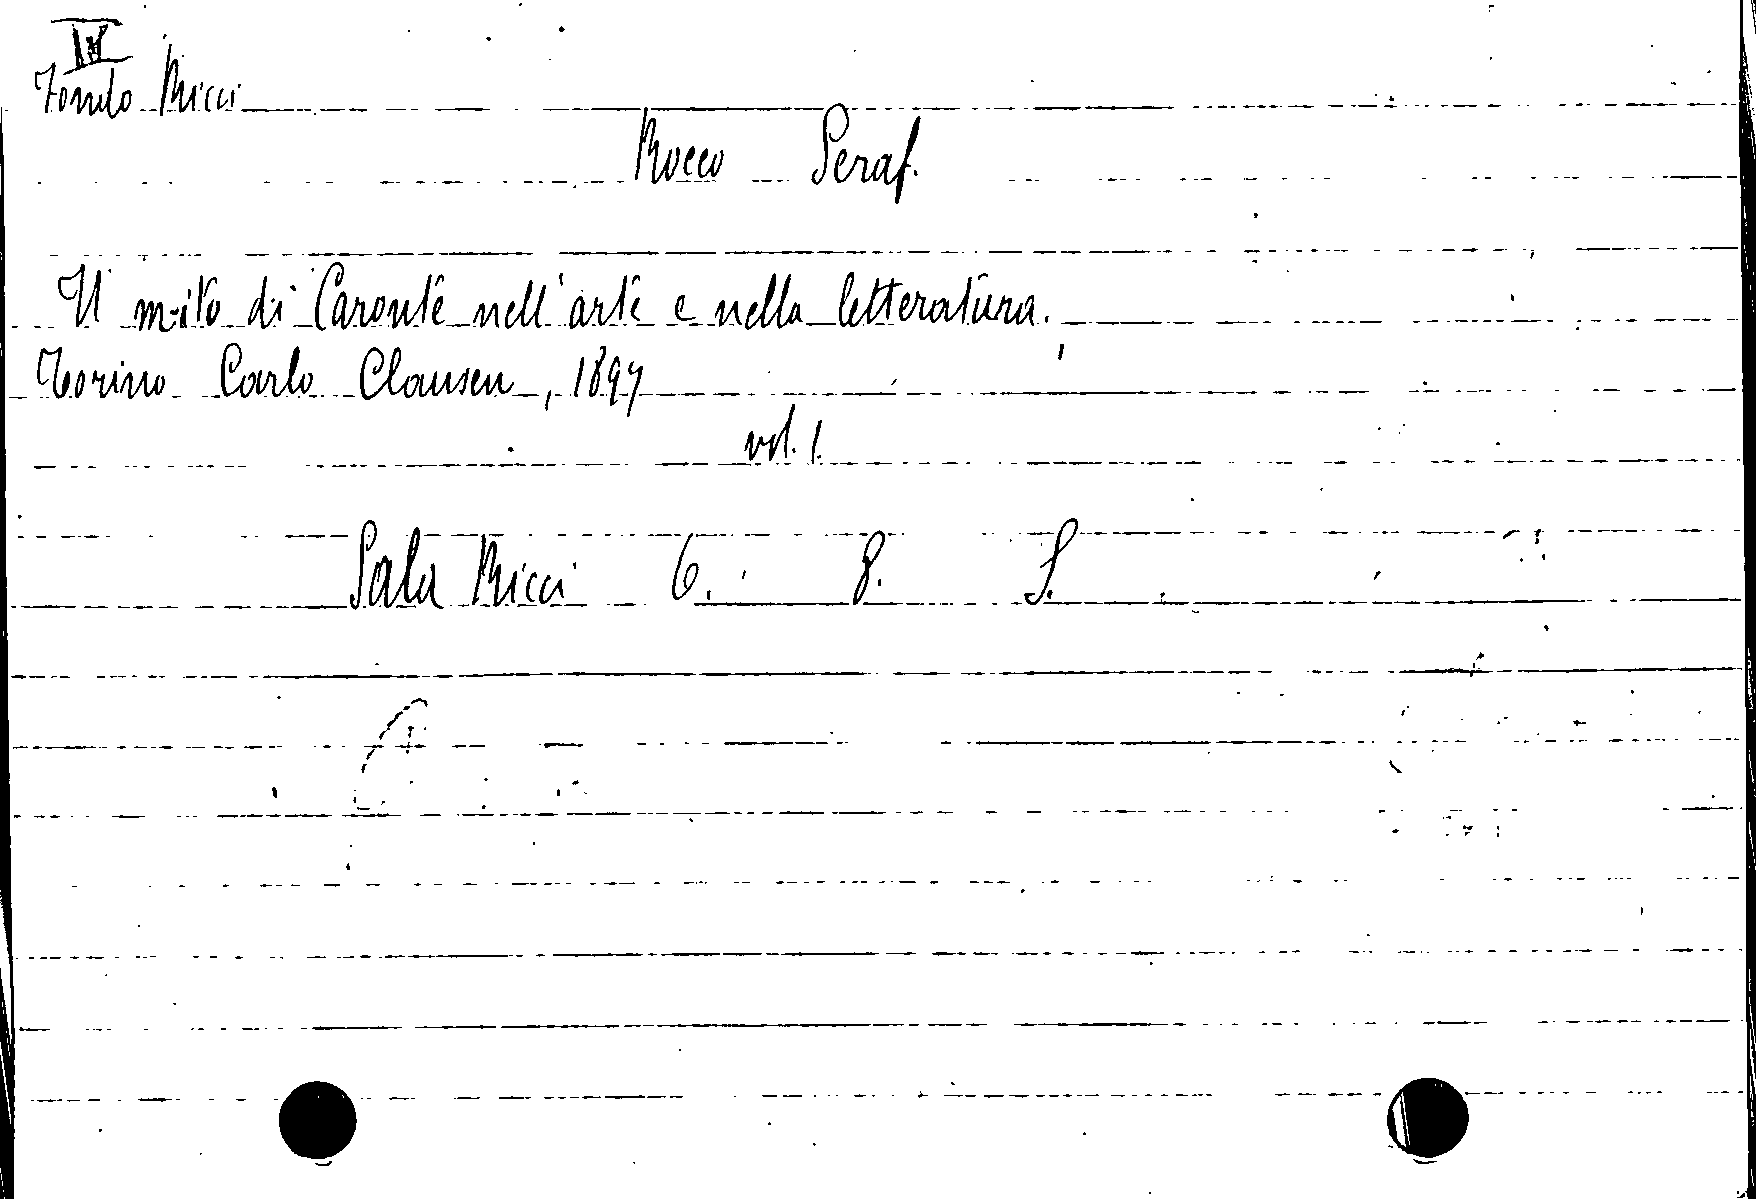 IV
Fondo Ricci
Rocco Seraf.
Il mito di Caronte nell'arte e nella letteratura.
Torino Carlo Clausen, 1897
vol. 1.
Sala Ricci 6. 8. S.